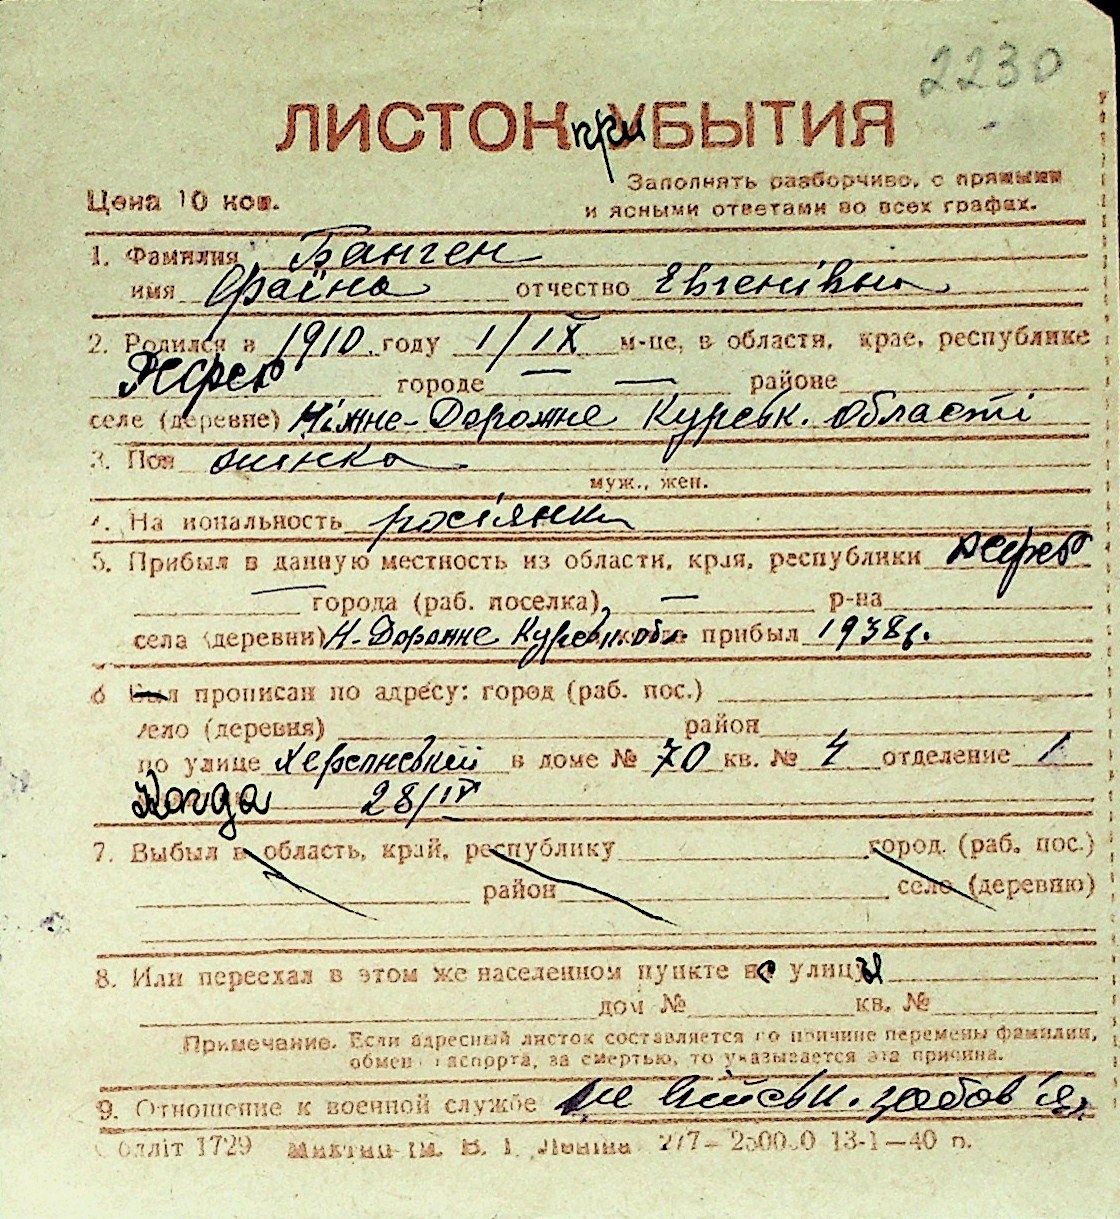 2230
ЛИСТОК при УБЫТИЯ
Заполнять разборчиво, с прямыми
Цена 10 коп.
и ясными ответами во всех графах.
1. Фамилия Банген
имя Фраїна отчество Евгенівна
2. Родился в 1910 году 1/IX м-це, в области, крае, республике
РСФСР городе — — районе
селе (деревне) Ніжне-Дорожне Курськ. області
3. Пол жінка
муж., жен.
4. На иональность росіянка
5. Прибыл в данную местность из области, края, республики РСФСР
— города (раб. поселка), — р-на
села (деревни) Н-Дорожне Курськ. обл. прибыл 1938 р.
6 Был прописан по адресу: город (раб. пос.)
село (деревня) район
по улице Херсонській в доме № 70 кв. № 4 отделение 1
Когда 28/IV
7. Выбыл в область, край, республику город (раб. пос.)
район село (деревню)
8. Или переехал в этом же населенном пункте с улицы
дом № кв. №
Примечание. Если адресный листок составляется по причине перемены фамилии,
обмен паспорта, за смертью, то указывается эта причина.
9. Отношение к военной службе не військ. забов'яз.
Облліт 1729 ім. В. І. Леніна 277— 13-1—40 р.